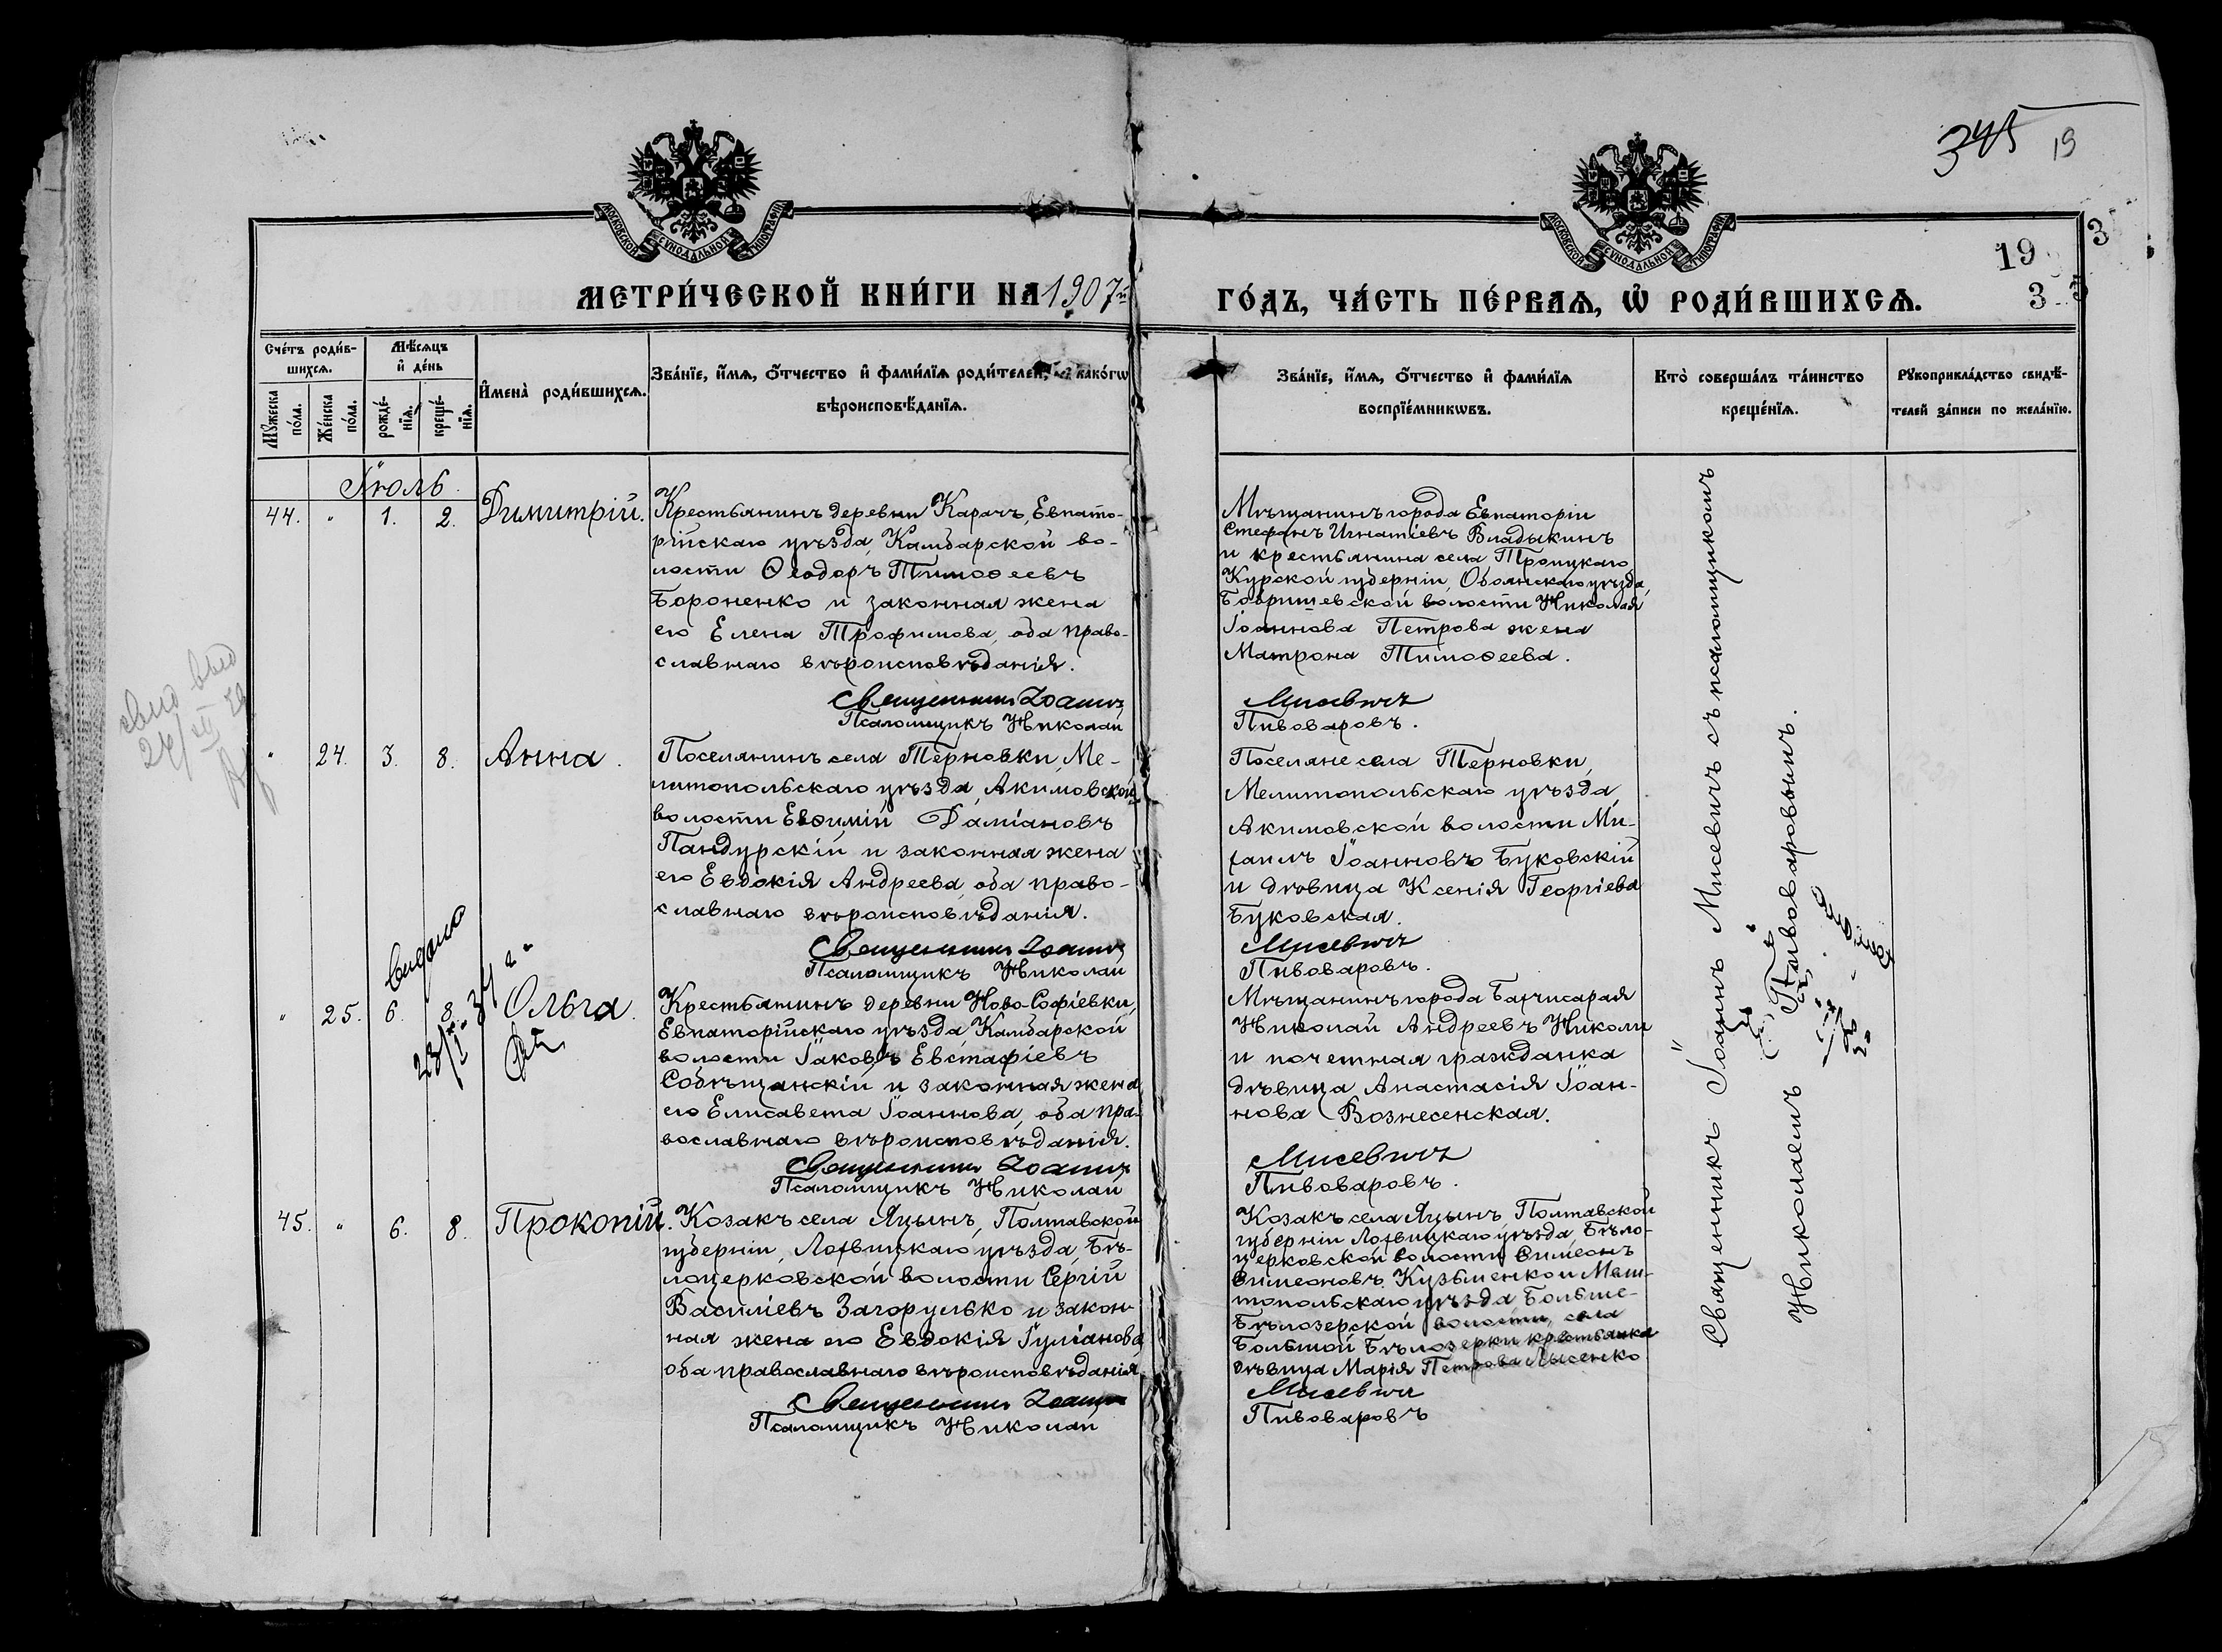 345 19
МОСКОВСКОЙ СѴНОДАЛЬНОЙ ТИПОГРАФІИ
МОСКОВСКОЙ СѴНОДАЛЬНОЙ ТИПОГРАФІИ
19
МЕТРИ́ЧЕСКОЙ КНИ́ГИ НА 1907й
ГО́ДЪ, ЧА́СТЬ ПЕ́РВАѦ, Ѡ҆ РОДИ́ВШИХСѦ.
Сче́тъ роди́в-
шихсѧ.
Мѣ́сяцъ
и҆ де́нь
Мꙋ́жеска
по́ла.
Же́нска
по́ла.
рожде́-
нїѧ.
креще́-
нїѧ.
И҆мена̀ роди́вшихсѧ.
Зва́нїе, и҆́мѧ, ѻ҆́тчество и҆ фами́лїѧ роди́телей, како́гѡ
вѣроисповѣ́данїѧ.
Зва́нїе, и҆́мѧ, ѻ҆́тчество и҆ фами́лїѧ
воспрїе́мникѡвъ.
Кто̀ соверша́лъ та́инство
креще́нїѧ.
Рꙋкоприкла́дство свидѣ́-
телей за́писи по жела́нїю.
Іюль
44. " 1. 2. Димитрій.
Крестьянинъ деревни Карачъ, Евпато-
рійскаго уѣзда, Камбарской во-
лости Ѳеодоръ Тимоѳеевъ
Бороненко и законная жена
его Елена Трофимова, оба право-
славнаго вѣроисповѣданія.
Священникъ Іоаннъ
Псаломщикъ Николай
Мѣщанинъ города Евпаторіи
Стефанъ Игнатіевъ Владыкинъ
и крестьянина села Троицкаго
Курской губерніи, Обоянскаго уѣзда,
Бобрышевской волости Николая
Іоаннова Петрова жена
Матрона Тимоѳеева.
Мисевичъ
Пивоваровъ.
" 24. 3. 8. Анна.
Поселянинъ села Терновки, Ме-
литопольскаго уѣзда, Акимовской
волости Евѳимій Даміановъ
Пандурскій и законная жена
его Евдокія Андреева, оба право-
славнаго вѣроисповѣданія.
Священникъ Іоаннъ
Псаломщикъ Николай
Поселяне села Терновки,
Мелитопольскаго уѣзда,
Акимовской волости Ми-
хаилъ Іоанновъ Буковскій
и дѣвица Ксенія Георгіева
Буковская.
Мисевичъ
Пивоваровъ.
" 25. 6. 8. Ольга.
Крестьянинъ деревни Ново-Софіевки,
Евпаторійскаго уѣзда Камбарской
волости Іаковъ Евстафіевъ
Собѣщанскій и законная жена
его Елисавета Іоаннова, оба пра-
вославнаго вѣроисповѣданія.
Священникъ Іоаннъ
Псаломщикъ Николай
Мѣщанинъ города Бахчисарая
Николай Андреевъ Николи
и почетная гражданка
дѣвица Анастасія Іоан-
нова Вознесенская.
Мисевичъ
Пивоваровъ.
45. " 6. 8. Прокопій.
Козакъ села Яцынъ, Полтавской
губерніи, Лохвицкаго уѣзда, Бѣ-
лоцерковской волости Сергій
Василіевъ Загорулько и закон-
ная жена его Евдокія Іуліанова
оба православнаго вѣроисповѣданія
Священникъ Іоаннъ
Псаломщикъ Николай
Козакъ села Яцынъ, Полтавской
губерніи Лохвицкаго уѣзда, Бѣло-
церковской волости Симеонъ
Симеоновъ Кузьменко и Мели-
топольскаго уѣзда Больше-
Бѣлозерской волости, села
Большой Бѣлозерки крестьянка
дѣвица Марія Петрова Лысенко
Мисевичъ
Пивоваровъ
Священникъ Іоаннъ Мисевичъ съ псаломщикомъ
Николаемъ Пивоваровымъ.